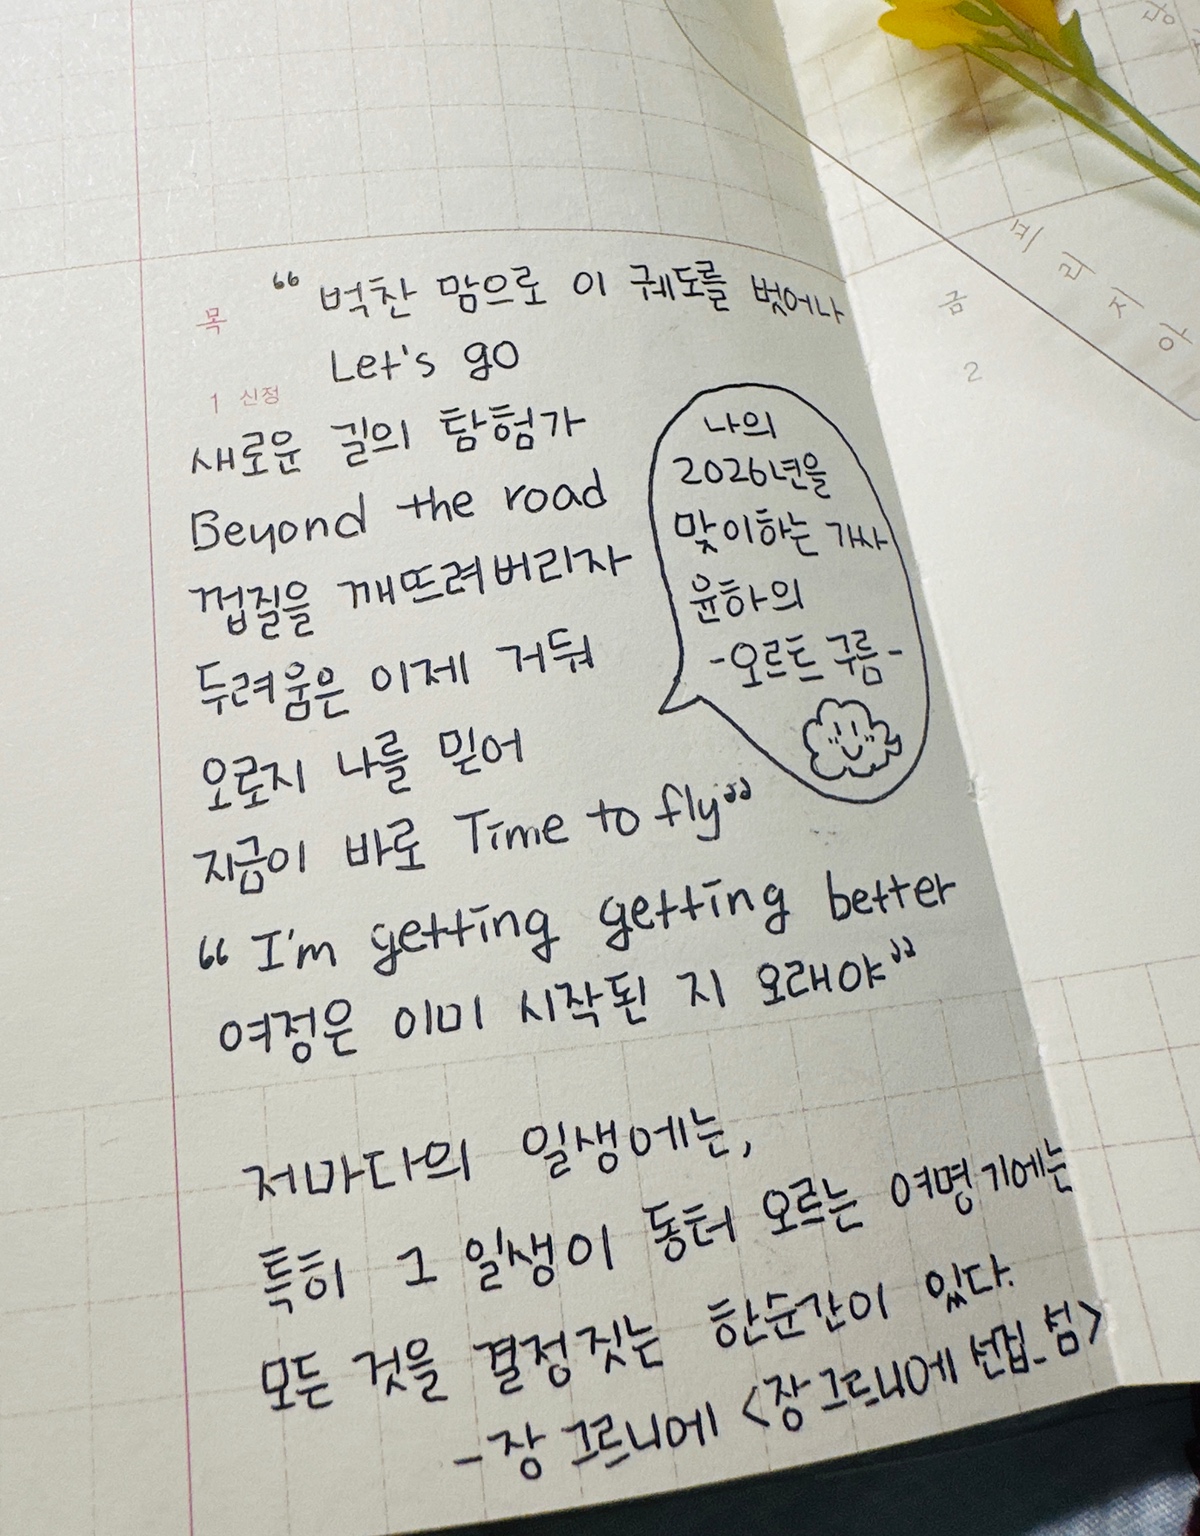 목
1 신정
“ 벅찬 맘으로 이 궤도를 벗어나
Let's go
새로운 길의 탐험가
Beyond the road
껍질을 깨뜨려버리자
두려움은 이제 거둬
오로지 나를 믿어
지금이 바로 Time to fly”
“ I'm getting getting better
여정은 이미 시작된 지 오래야”
나의
2026년을
맞이하는 가사
윤하의
-오르트 구름-
저마다의 일생에는,
특히 그 일생이 동터 오르는 여명기에는
모든 것을 결정짓는 한순간이 있다.
-장 그르니에 <장 그르니에 선집_섬>
금
2
피
리
지
아